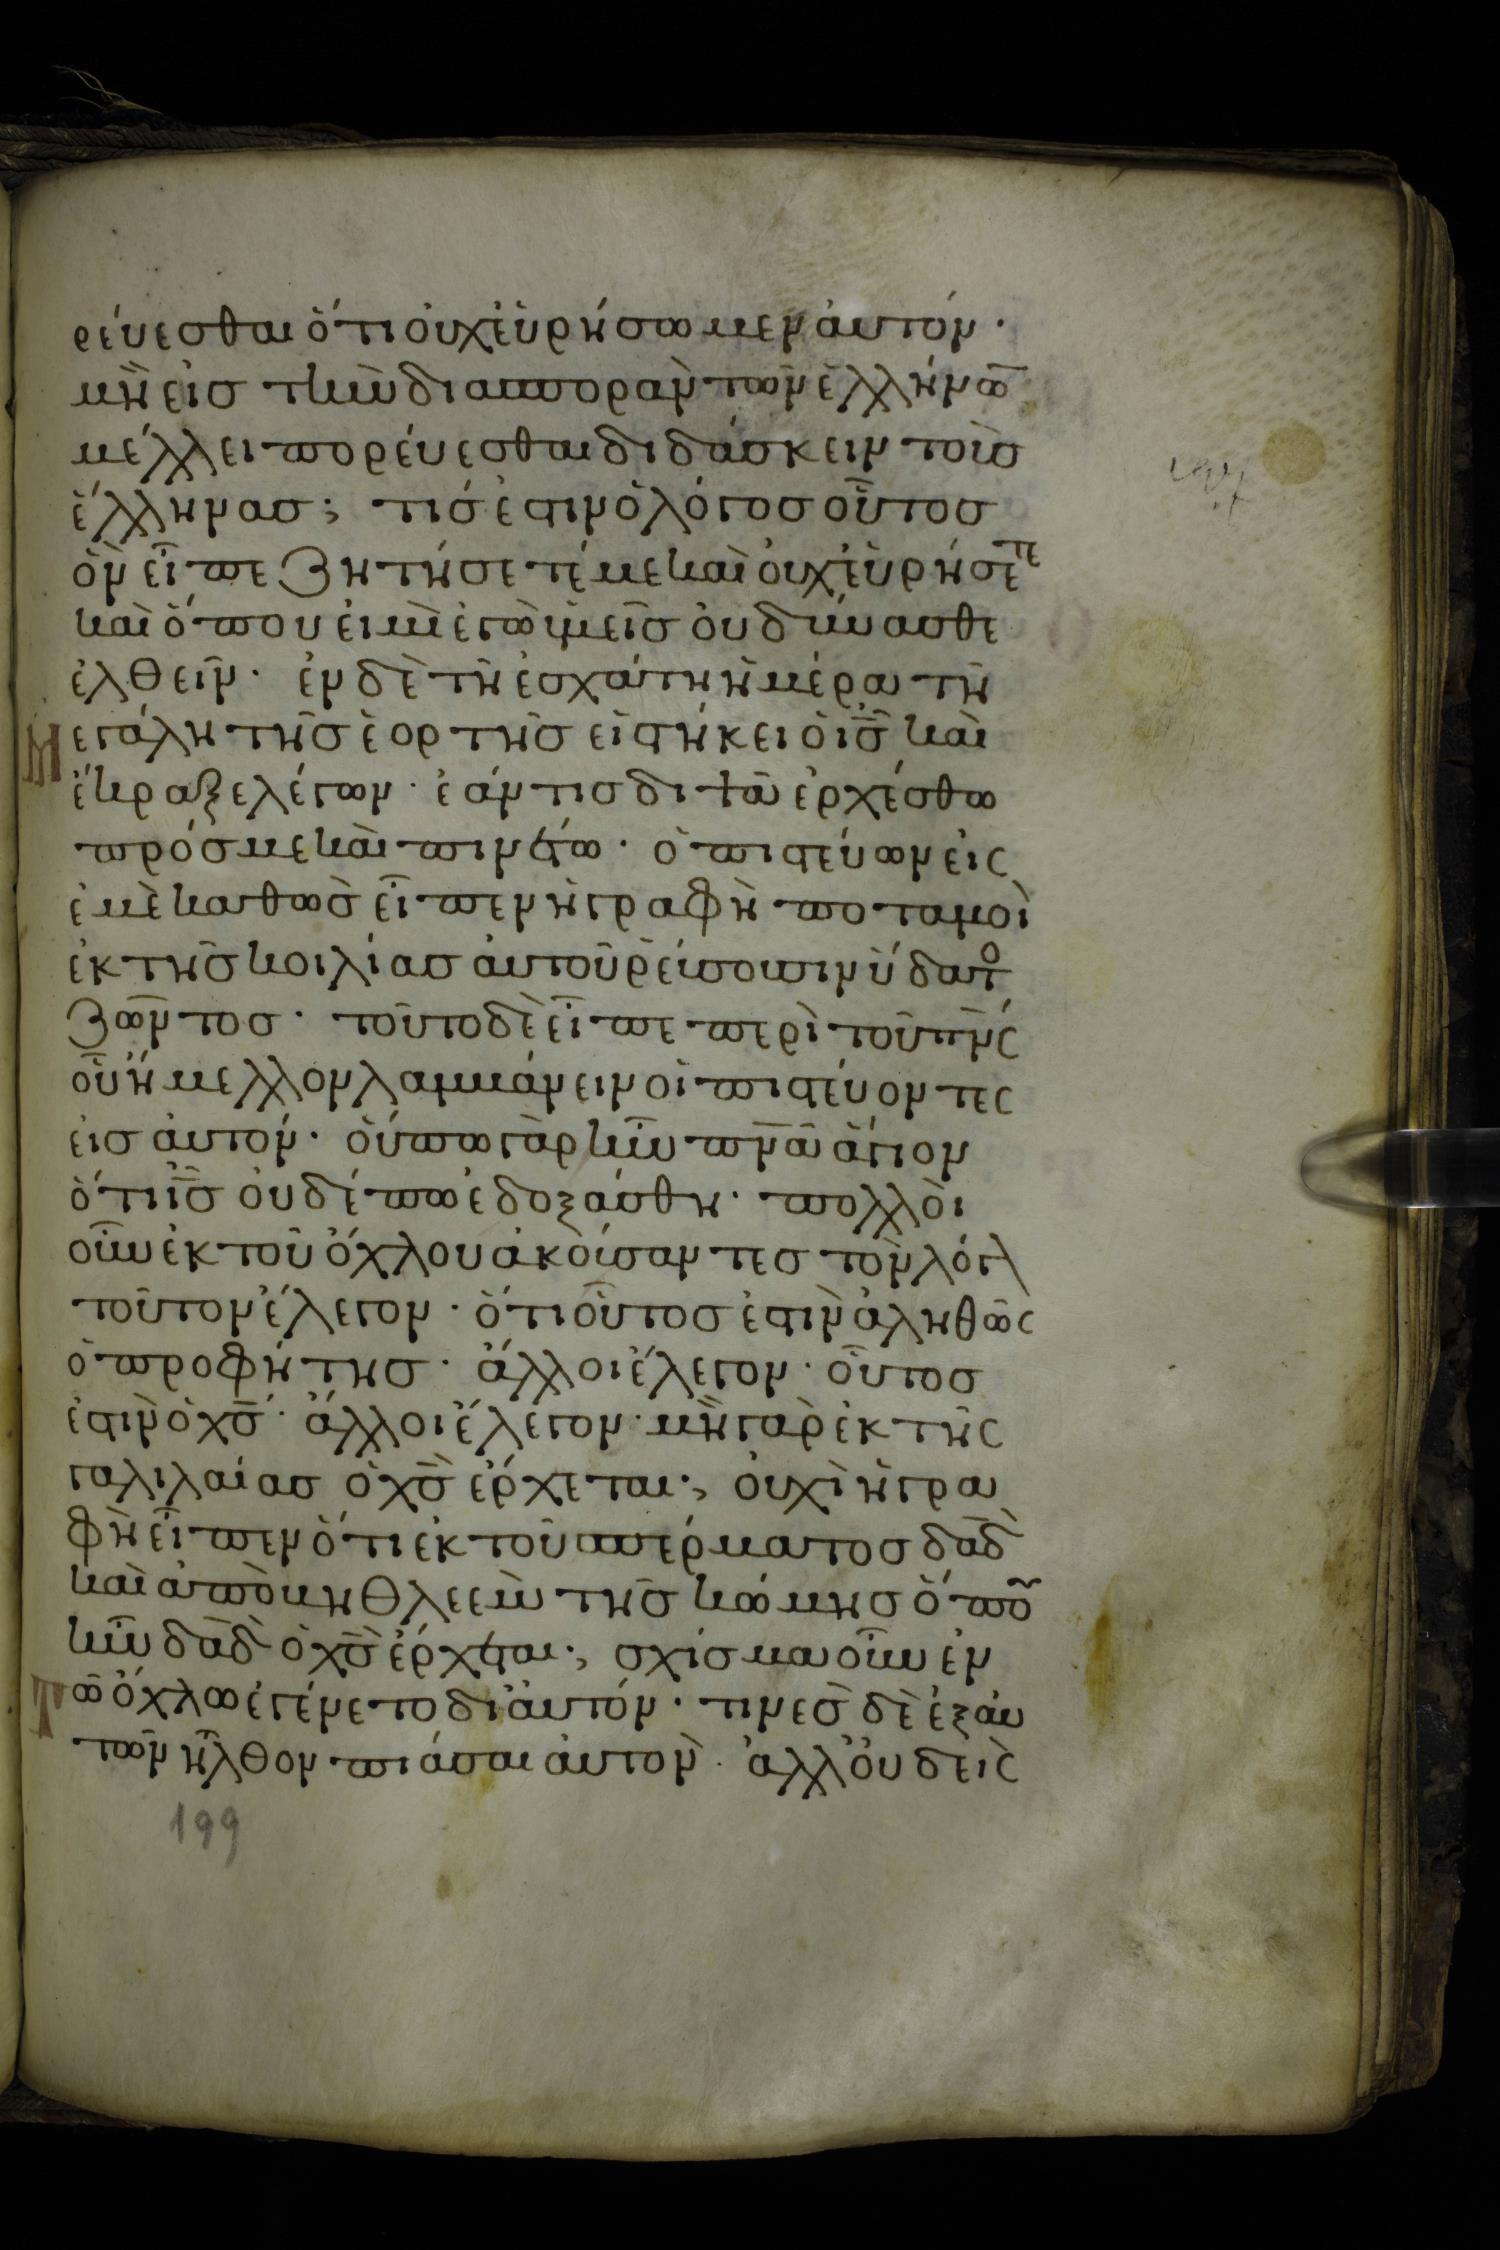 ρεύεσθαι ὅτι οὐχ εὑρήσωμεν αὐτόν·
μὴ εἰς τὴν διασποραν τῶν ἑλλήνω̅
μέλλει πορεύεσθαι διδάσκειν τοὺσ
ἕλληνασ; τίσ ἐστιν ὁ λόγοσ οὗτοσ
ὃν εἶπε ζητήσετέ με καὶ οὐχ εὑρήσετε
καὶ ὅπου εἰμὶ ἐγὼ ὑμεῖσ οὐ δύνασθε
ἐλθεῖν· ἐν δὲ τῆ ἐσχάτη ἡμέρα τῆ
Μεγάλη τῆσ ἑορτῆσ εἱστήκει ὁ ι̅σ̅ καὶ
ἔκραξε λέγων· ἐάν τισ διψᾶ ἐρχέσθω
πρόσ με καὶ πινέτω· ὁ πιστεύων εἰς
ἐμὲ καθὼσ εἶπεν ἡ γραφὴ ποταμοὶ
ἐκ τῆσ κοιλίασ αὐτοῦ ῥεύσουσιν ὕδατο
ζῶντοσ· τοῦτο δὲ εἶπε περὶ τοῦ π̅ν̅ς
οὗ ἤμελλον λαμβάνειν οἱ πιστεύοντες
εισ αὐτόν· οὔπω γὰρ ἦν π̅ν̅α̅ ἅγιον
ὅτι ι̅σ̅ οὐδέπω ἐδοξάσθη· πολλοὶ
οὖν ἐκ τοῦ ὄχλου ἀκούσαντεσ τὸν λόγ
τοῦτον ἔλεγον· ὅτι οὗτοσ ἐστιν ἀληθῶς
ὁ προφήτησ· ἄλλοι ἔλεγον· οὗτοσ
ἐστιν ὁ χ̅σ̅· ἄλλοι ἔλεγον· μὴ γαρ ἐκ τῆς
γαλιλαίασ ὁ χ̅σ̅ ἔρχεται; οὐχὶ ἡ γρα
φὴ εἶπεν ὅτι ἐκ τοῦ σπέρματοσ δ̅α̅δ̅
καὶ ἀπὸ βηθλεεμ τῆσ κώμησ ὅπου
ἦν δ̅α̅δ̅ ὁ χ̅σ̅ ἔρχεται; σχίσμα οὖν ἐν
Τῶ ὄχλω ἐγένετο δι' αὐτόν· τινεσ δὲ ἐξ αυ
τῶν ἦλθον πιάσαι αὐτον· ἀλλ' οὐδεὶς
199